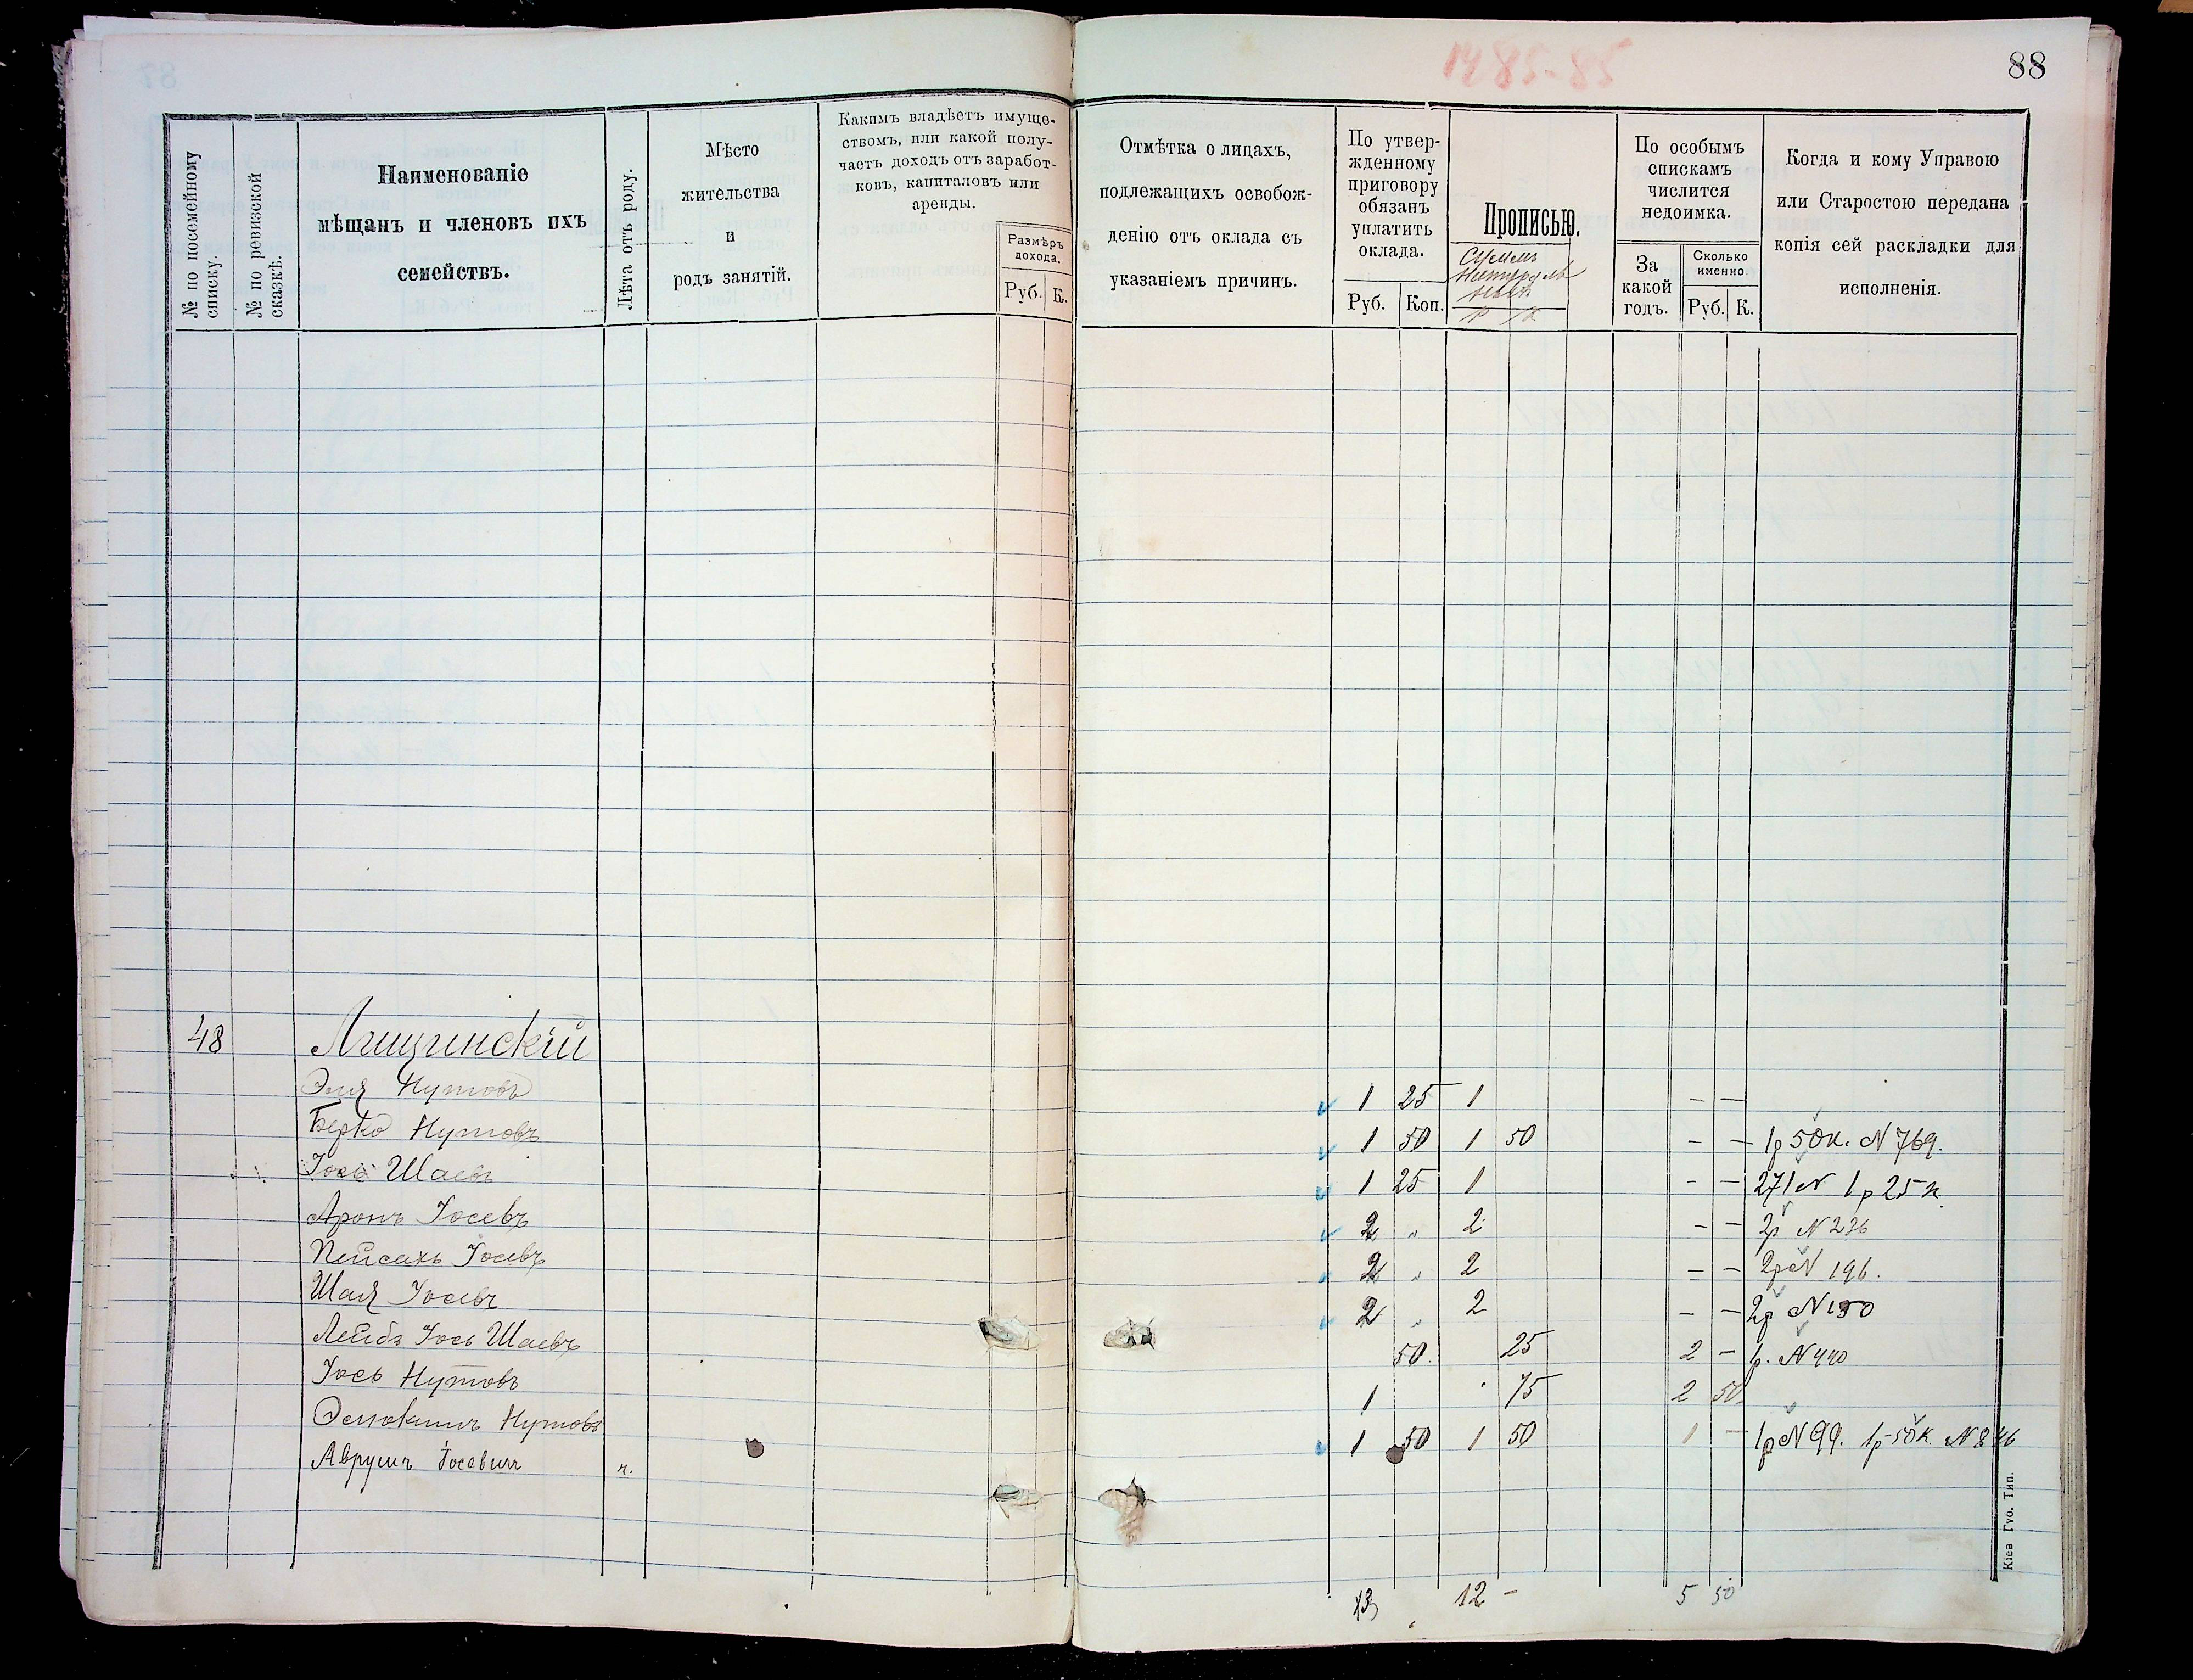 1485-85
88
№ по посемейному списку.
№ по ревизской сказкѣ.
Наименованіе
мѣщанъ и членовъ ихъ
семействъ.
Лѣта отъ роду.
Мѣсто
жительства
и
родъ занятій.
Какимъ владѣетъ имуще-
ствомъ, или какой полу-
чаетъ доходъ отъ заработ-
ковъ, капиталовъ или
аренды.
Размѣръ
дохода.
Руб. К.
Отмѣтка о лицахъ,
подлежащихъ освобож-
денію отъ оклада съ
указаніемъ причинъ.
По утвер-
жденному
приговору
обязанъ
уплатить
оклада.
Руб. Коп.
Прописью.
По особымъ
спискамъ
числится
недоимка.
За
какой
годъ.
Сколько
именно
Руб. К.
Когда и кому Управою
или Старостою передана
копія сей раскладки для
исполненія.
48 Лищинскій
Эля Нутовъ 1 25 1 – –
Берко Нутовъ 1 50 1 50 – – 1р 50к. N 769.
Іось Шаевъ 1 25 1 – – 271N 1р 25к
Аронъ Іосевъ 2 „ 2 – – 2р N 236
Пейсахъ Іосевъ 2 „ 2 – – 2р N 196.
Шая Іосевъ 2 „ 2 – – 2р N 190
Лейба Іось Шаевъ 50. 25 2 – 1р. N 440
Іось Нутовъ 1 75 2 50
Нутовъ 1 50 1 50 1 – 1р N 99. 1р 50к. N 846
Аврумъ Іосевичъ н.
13 12 – 5 50
Кіев Губ. Тип.